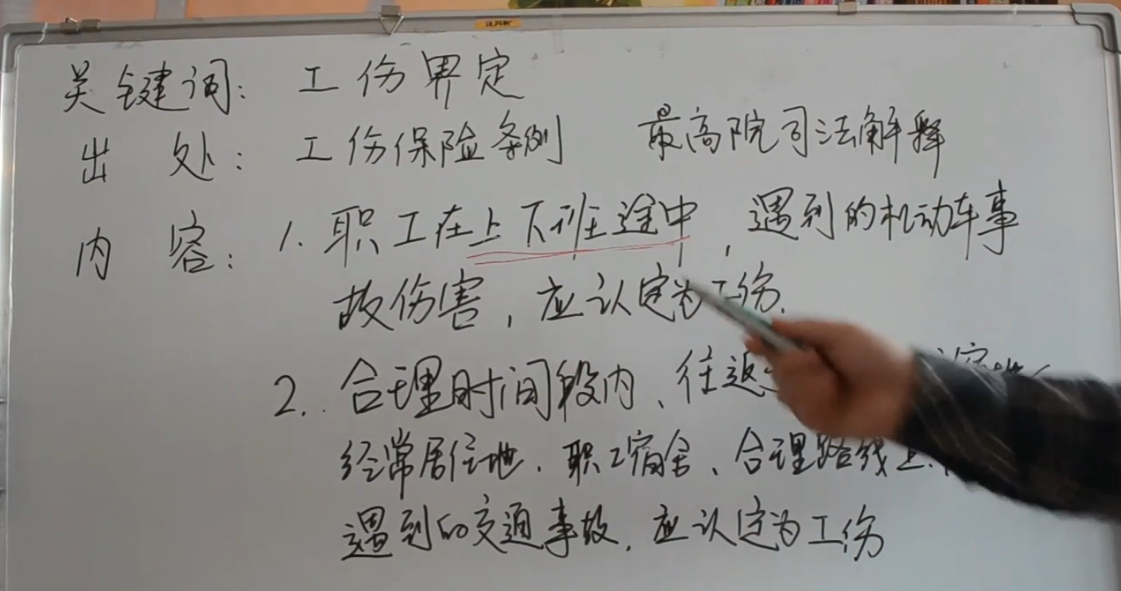 关键词: 工伤界定
出处: 工伤保险条例 最高院司法解释
内容: 1. 职工在上下班途中, 遇到的机动车事
故伤害, 应认定为工伤.
2. 合理时间段内、往返
经常居住地、职工宿舍、合理路线上
遇到的交通事故, 应认定为工伤